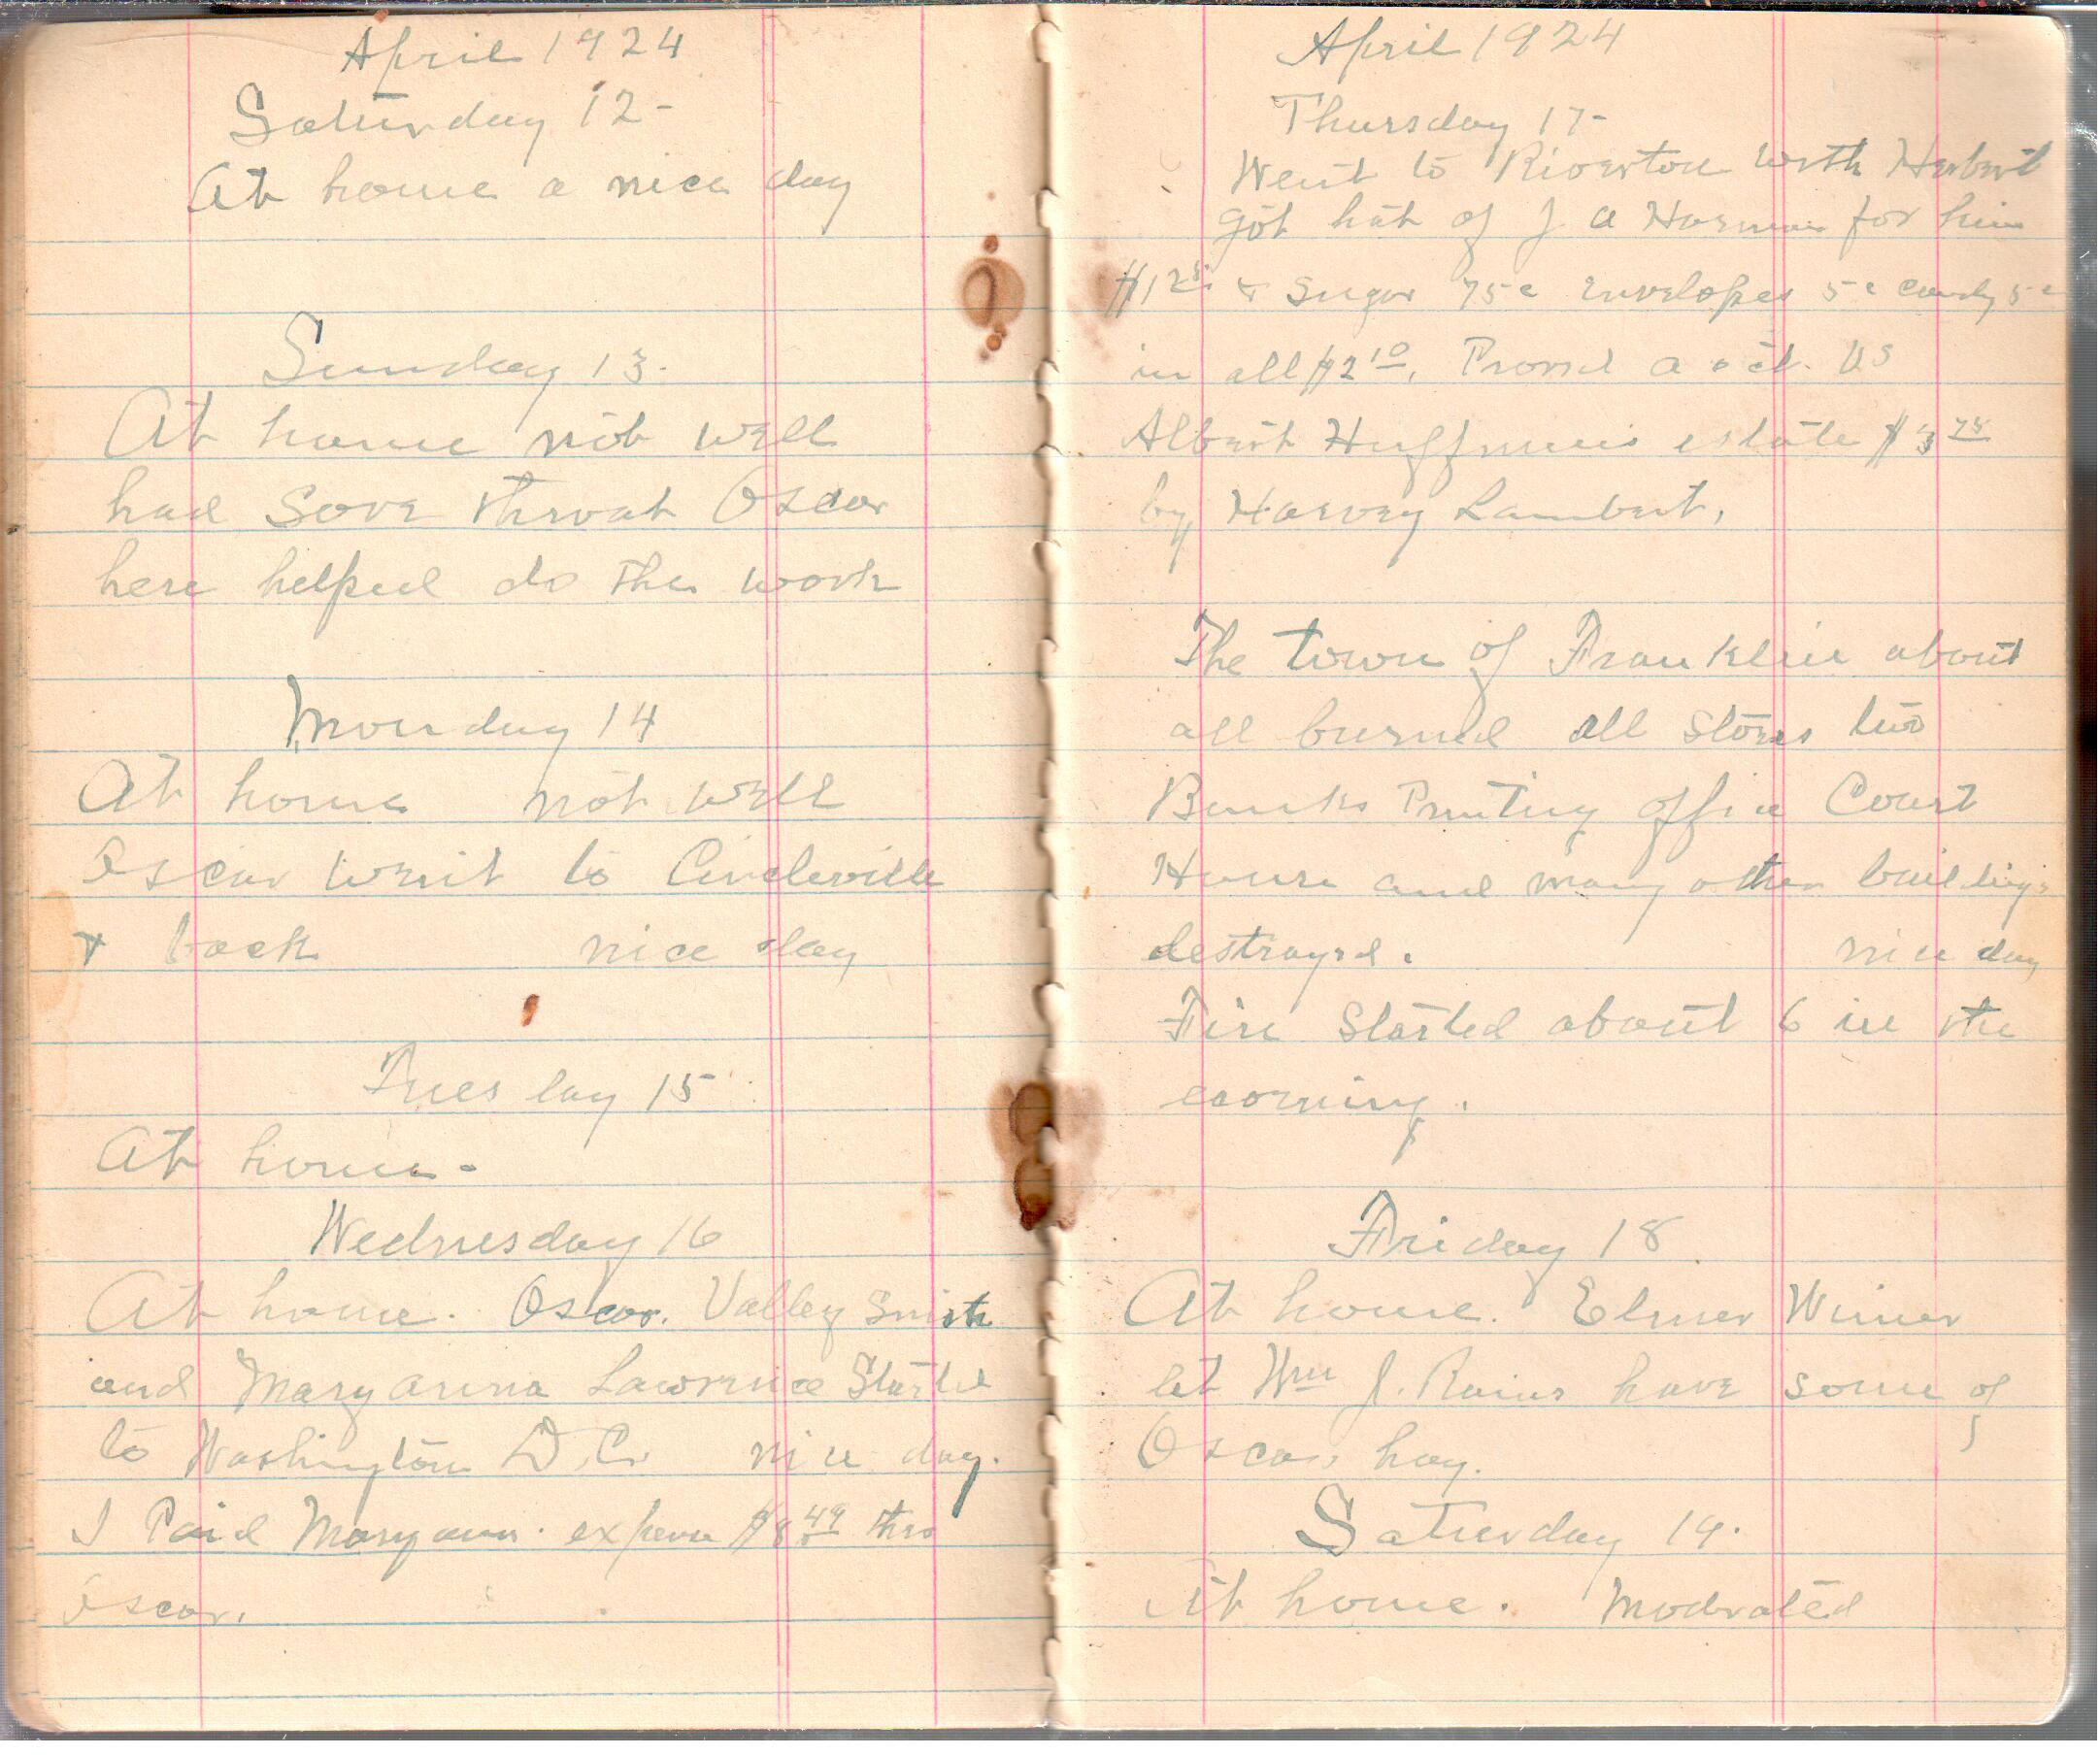 April 1924
Saturday 12-
At home a nice day
Sunday 13.
At home not well
had Sore throat Oscar
here helped do the work
Monday 14
At home not well
Oscar went to Circleville
& back nice day
Tuesday 15
At home.
Wednesday 16
At home. Oscar. Valley Smith
and Mary anna Lawrence Started
to Washington D.C. nice day.
I Paid Mary ann. expense $8 49 thro
Oscar.
April 1924
Thursday 17-
Went to Riverton with Herbert
got hat of J a Harman for him
$1 25 & Sugar 75c Envelopes 5c candy 5c
in all $2 10. Proved a act. VS
Albert Huffman's estate $3
by Harvey Lambert.
The town of Franklin about
all burned all Stores two
Banks Printing office Court
House and many other buildings
destroyed. nice day
Fire Started about 6 in the
morning.
Friday 18
At home. Elmer Wimer
at Wm J. Rains have some of
Oscar hay.
Saturday 19.
At home. Moderated